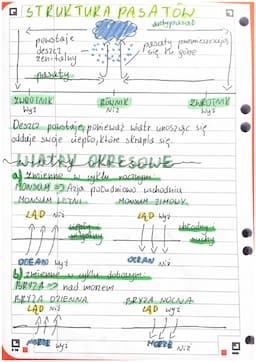 STRUKTURA PASATÓW
antypasat
powstaje
deszcz
zenitalny
pasaty przemieszczają
się ku górze
pasaty
ZWROTNIK RÓWNIK ZWROTNIK
Wyż Niż Wyż
Deszcz powstaje, ponieważ wiatr unosząc się
oddaje swoje ciepło, które skrapla się.
WIATRY OKRESOWE
a) zmienne w cyklu rocznym:
MONSUN => Azja południowo wschodnia
MONSUN LETNI MONSUN ZIMOWY
LĄD Niż LĄD Wyż
ciepły
wilgotny
chłodny
suchy
OCEAN Wyż OCEAN Niż
b) zmienne w cyklu dobowym:
BRYZA => nad morzem
BRYZA DZIENNA BRYZA NOCNA
LĄD Niż LĄD Wyż
MORZE Wyż MORZE Niż